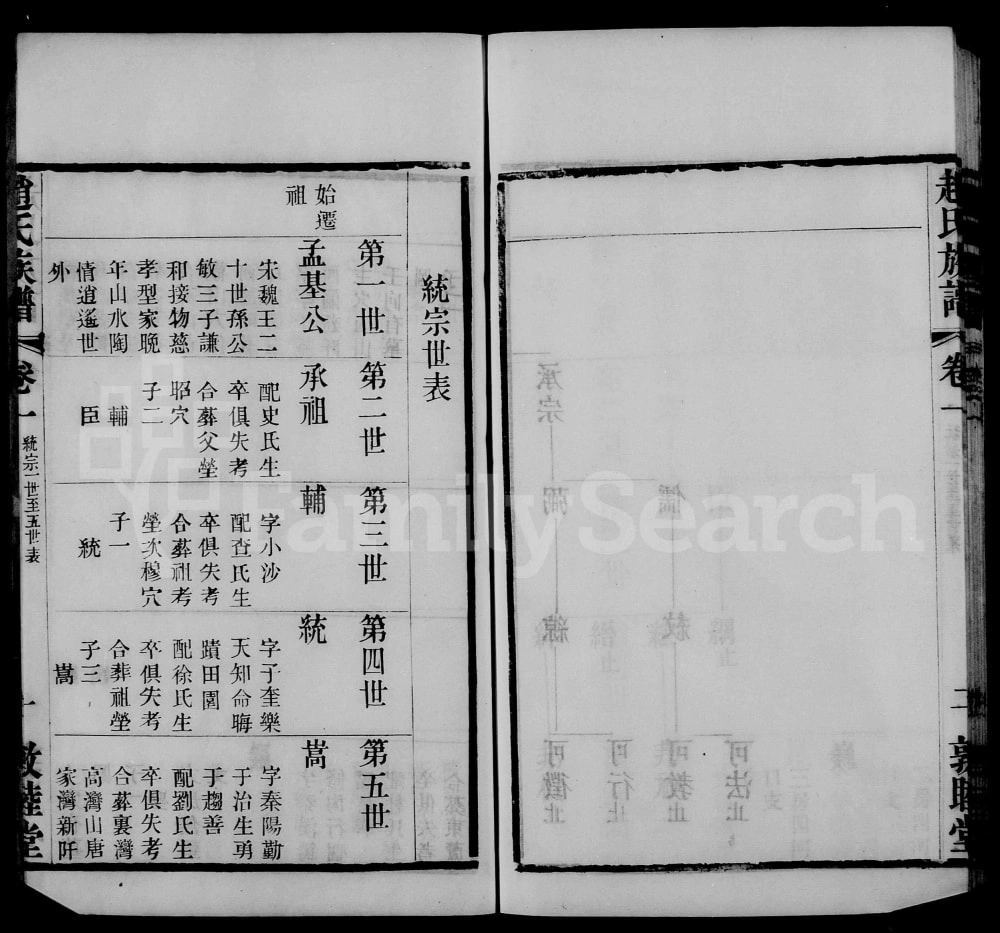 趙氏族譜
卷一
二
敦睦堂
統宗世表
始遷
祖
第一世
孟基公
宋魏王二
十世孫公
敏三子謙
和接物慈
孝型家晚
年山水陶
情逍遙世
外
第二世
承祖
配史氏生
卒俱失考
合葬父塋
昭穴
子二
輔
臣
第三世
輔
字小沙
配查氏生
卒俱失考
合葬祖考
塋次穆穴
子一
統
第四世
統
字子奎樂
天知命晦
蹟田園
配徐氏生
卒俱失考
合葬祖塋
子三
嵩
第五世
嵩
字秦陽勤
于治生勇
于趨善
配劉氏生
卒俱失考
合葬裏灣
高灣山唐
家灣新阡
趙氏族譜
卷一
統宗一世至五世表
一
敦睦堂
FamilySearch